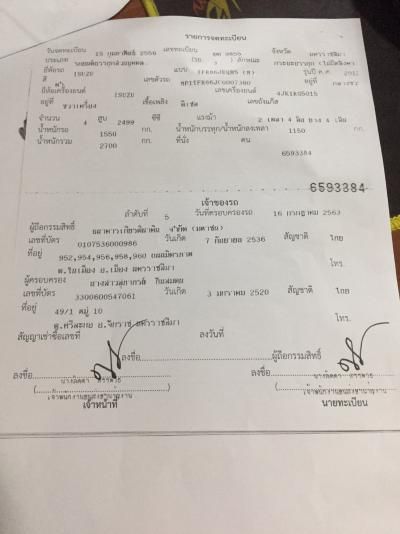 รายการจดทะเบียน
วันจดทะเบียน 15 กุมภาพันธ์ 2556 เลขทะเบียน 9855 จังหวัด นครราชสีมา
ประเภท รถยนต์บรรทุกส่วนบุคคล (รย. 3 ) ลักษณะ กระบะบรรทุก
ยี่ห้อรถ ISUZU แบบ รุ่นปี ค.ศ.
สี เลขตัวรถ อยู่ที่
ยี่ห้อเครื่องยนต์ ISUZU เลขเครื่องยนต์ 4JK1KG5015
อยู่ที่ ขวาเครื่อง เชื้อเพลิง ดีเซล เลขถังแก๊ส
จำนวน 4 สูบ 2499 ซีซี แรงม้า 2 เพลา 4 ล้อ ยาง 4 เส้น
น้ำหนักรถ 1550 กก. น้ำหนักบรรทุก/น้ำหนักลงเพลา 1150 กก.
น้ำหนักรวม 2700 กก. ที่นั่ง คน
6593384
6593384
เจ้าของรถ
ลำดับที่ 5 วันที่ครอบครองรถ 16 กรกฎาคม 2563
ผู้ถือกรรมสิทธิ์ ธนาคารเกียรตินาคิน จำกัด (มหาชน)
เลขที่บัตร 0107536000986 วันเกิด 7 กันยายน 2536 สัญชาติ ไทย
ที่อยู่ 952,954,956,958,960 ถนนมิตรภาพ
ต.ในเมือง อ.เมือง นครราชสีมา โทร.
ผู้ครอบครอง นางสาว
เลขที่บัตร 3300600547061 วันเกิด 3 มกราคม 2520 สัญชาติ ไทย
ที่อยู่ 49/1 หมู่ 10
ต.ศรีละกอ อ.จักราช นครราชสีมา โทร.
สัญญาเช่าซื้อเลขที่ ลงวันที่
ลงชื่อ ผู้ถือกรรมสิทธิ์
ลงชื่อ ลงชื่อ
เจ้าพนักงานขนส่งชำนาญงาน เจ้าพนักงานขนส่งชำนาญงาน
เจ้าหน้าที่ นายทะเบียน